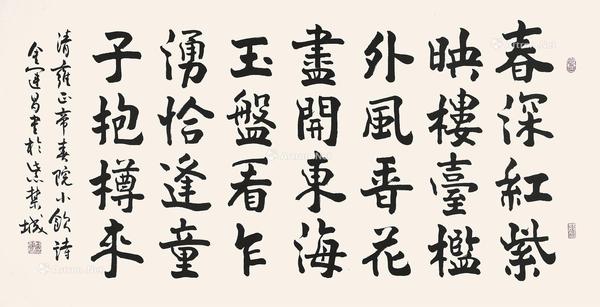 春深紅紫
映樓臺檻
外風香花
盡開東海
玉盤看乍
湧恰逢童
子抱樽来
清雍正帝春院小飲詩
金運昌書於紫禁城